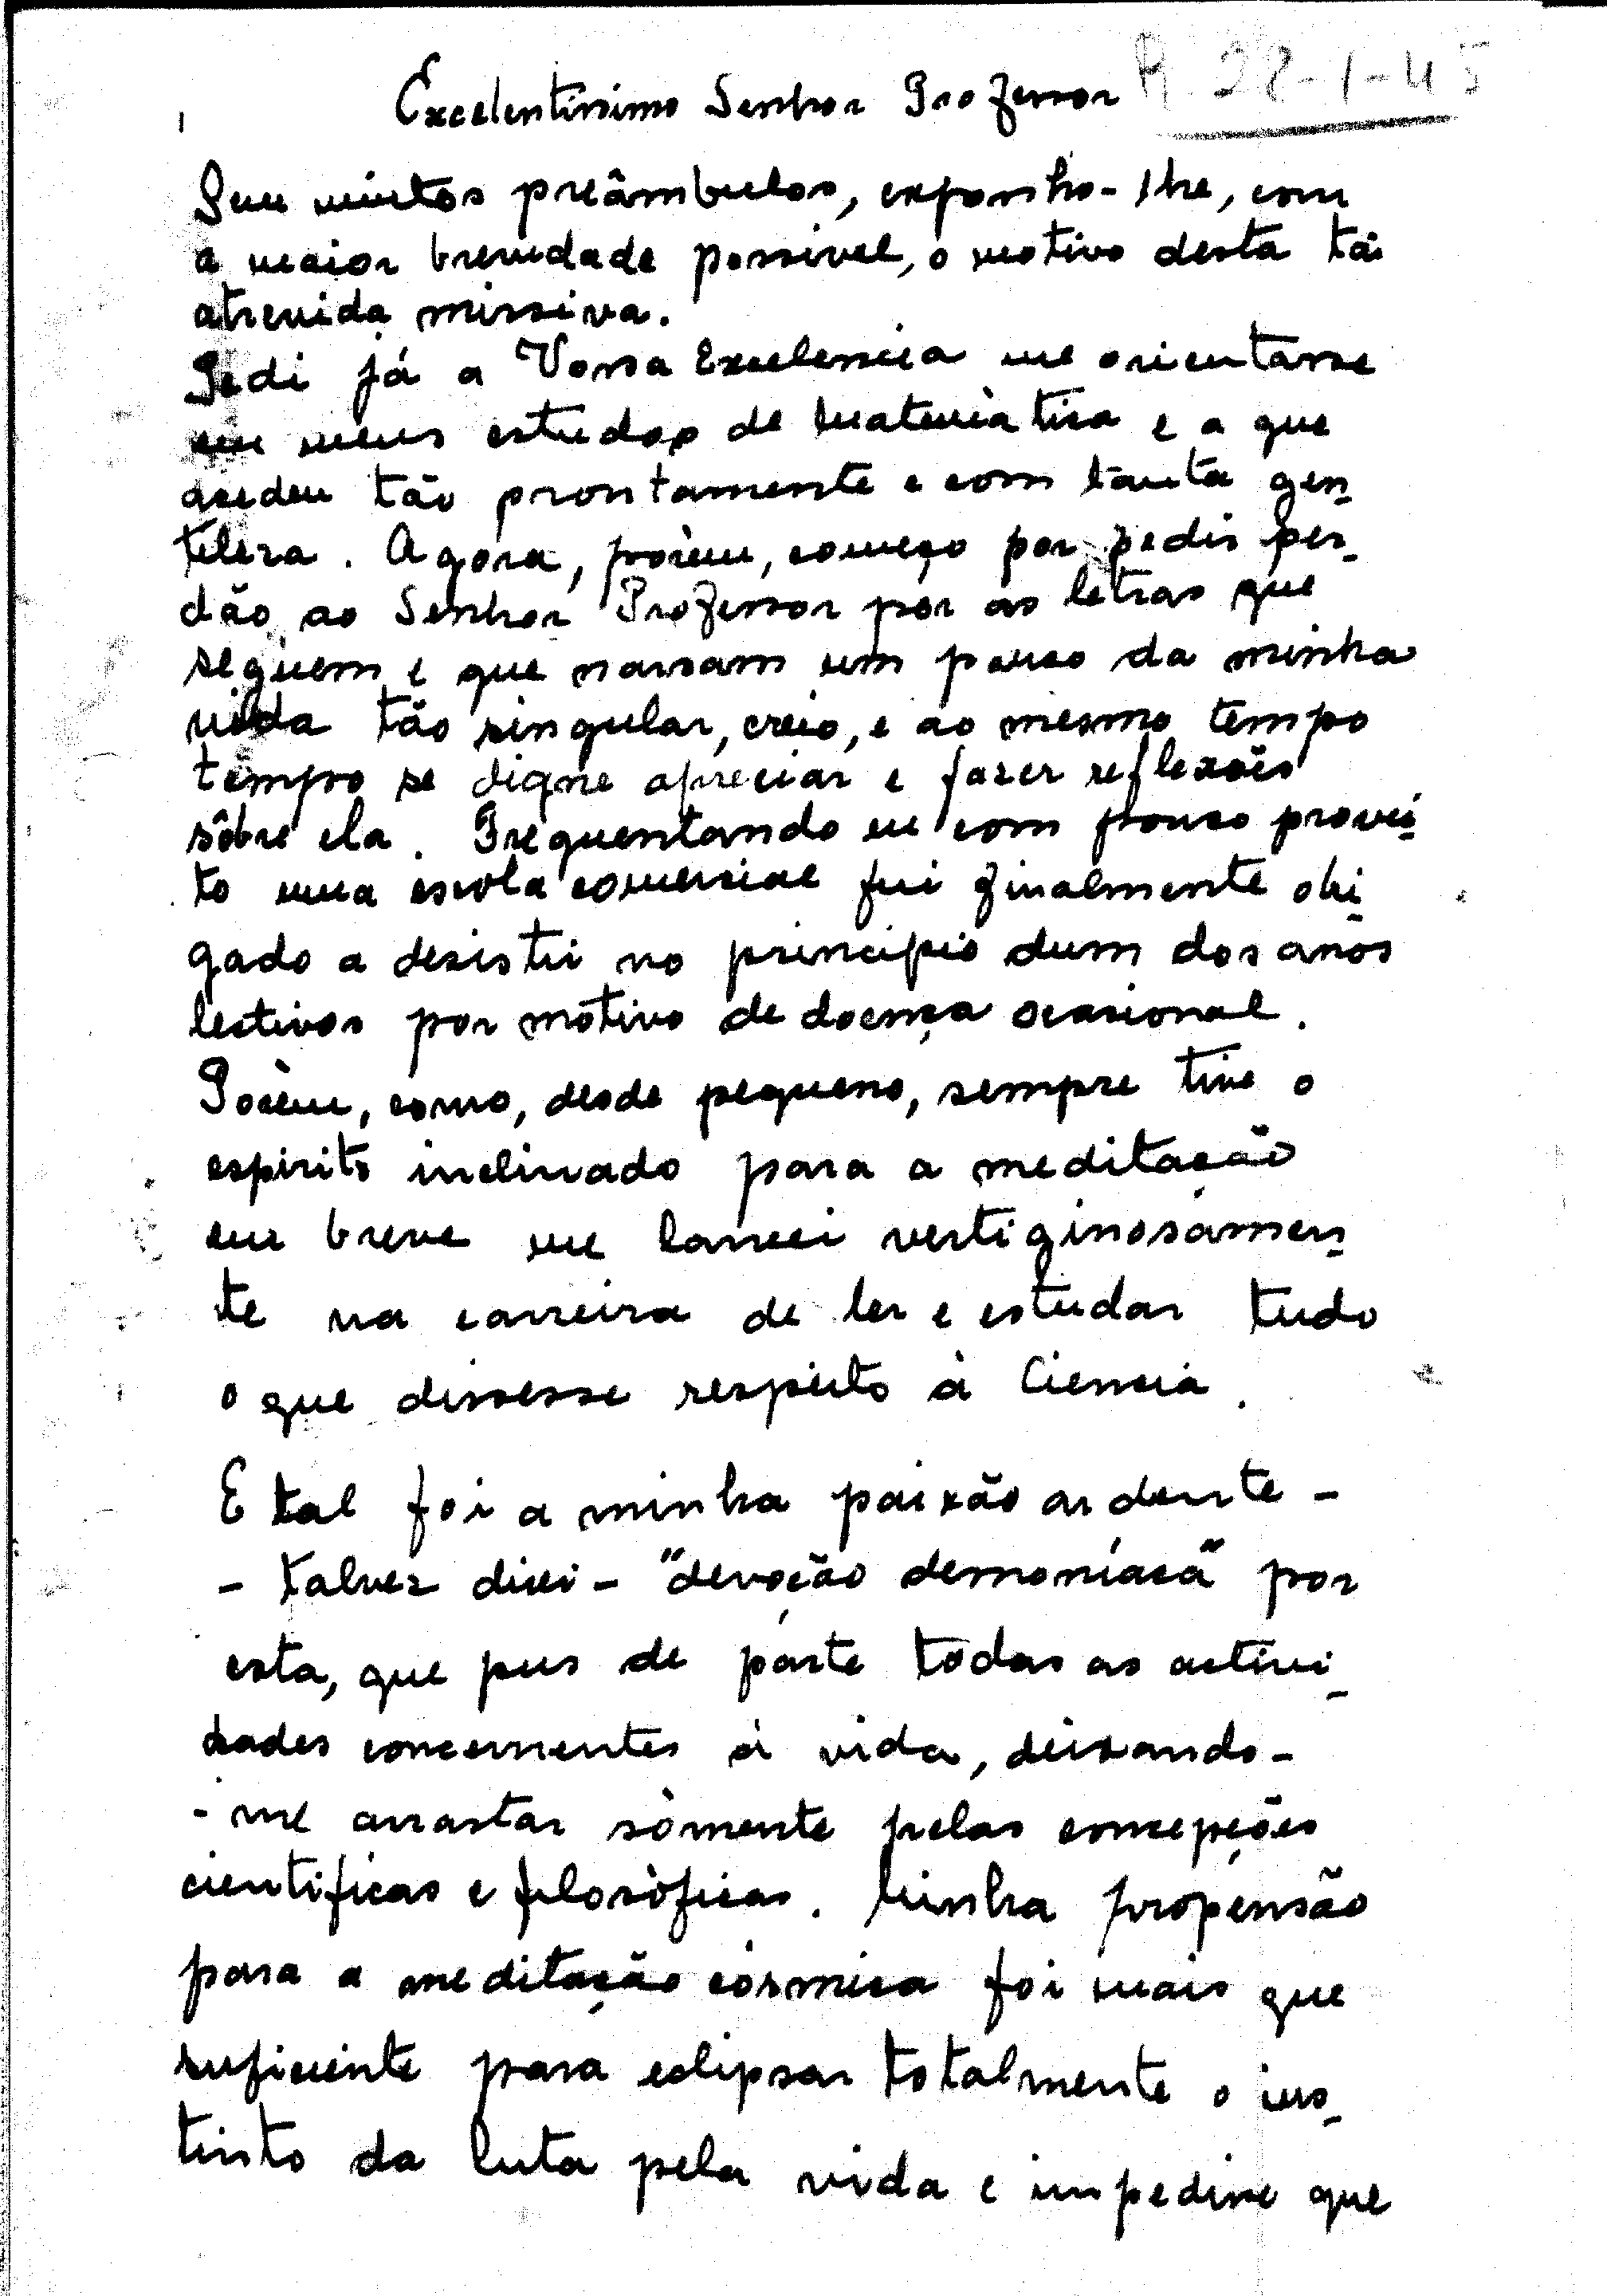 Excelentíssimo Senhor Professor R 22-1-45
Sem muitos preâmbulos, exponho-lhe, com
a maior brevidade possivel, o motivo desta tão
atrevida missiva.
Pedi já a Vossa Excelencia me orientasse
em meus estudos de Matemàtica e a que
acedeu tão prontamente e com tanta gen_
tileza. Agora, porèm, começo por pedir per_
dão ao Senhor Professor por as letras que
seguem e que narram um pouco da minha
vida tão singular, creio, e ao mesmo tempo
tempo se digne apreciar e fazer reflexões
sôbre ela. Frequentando eu com pouco provei_
to uma escola comercial fui finalmente obri_
gado a desistir no principio dum dos anos
lectivos por motivo de doença ocasional.
Porèm, como, desde pequeno, sempre tive o
espirito inclinado para a meditação
em breve me lancei vertiginosamen_
te na carreira de ler e estudar tudo
o que dissesse respeito à Ciencia.
E tal foi a minha paixão ardente -
- talvez direi - "devoção demoníaca" por
esta, que pus de parte todas as activi_
dades concernentes à vida, deixando-
-me arrastar sòmente pelas concepções
cientificas e filosòficas. Minha propensão
para a meditação còsmica foi mais que
suficiente para eclipsar totalmente o ins_
tinto da luta pela vida e impedir que